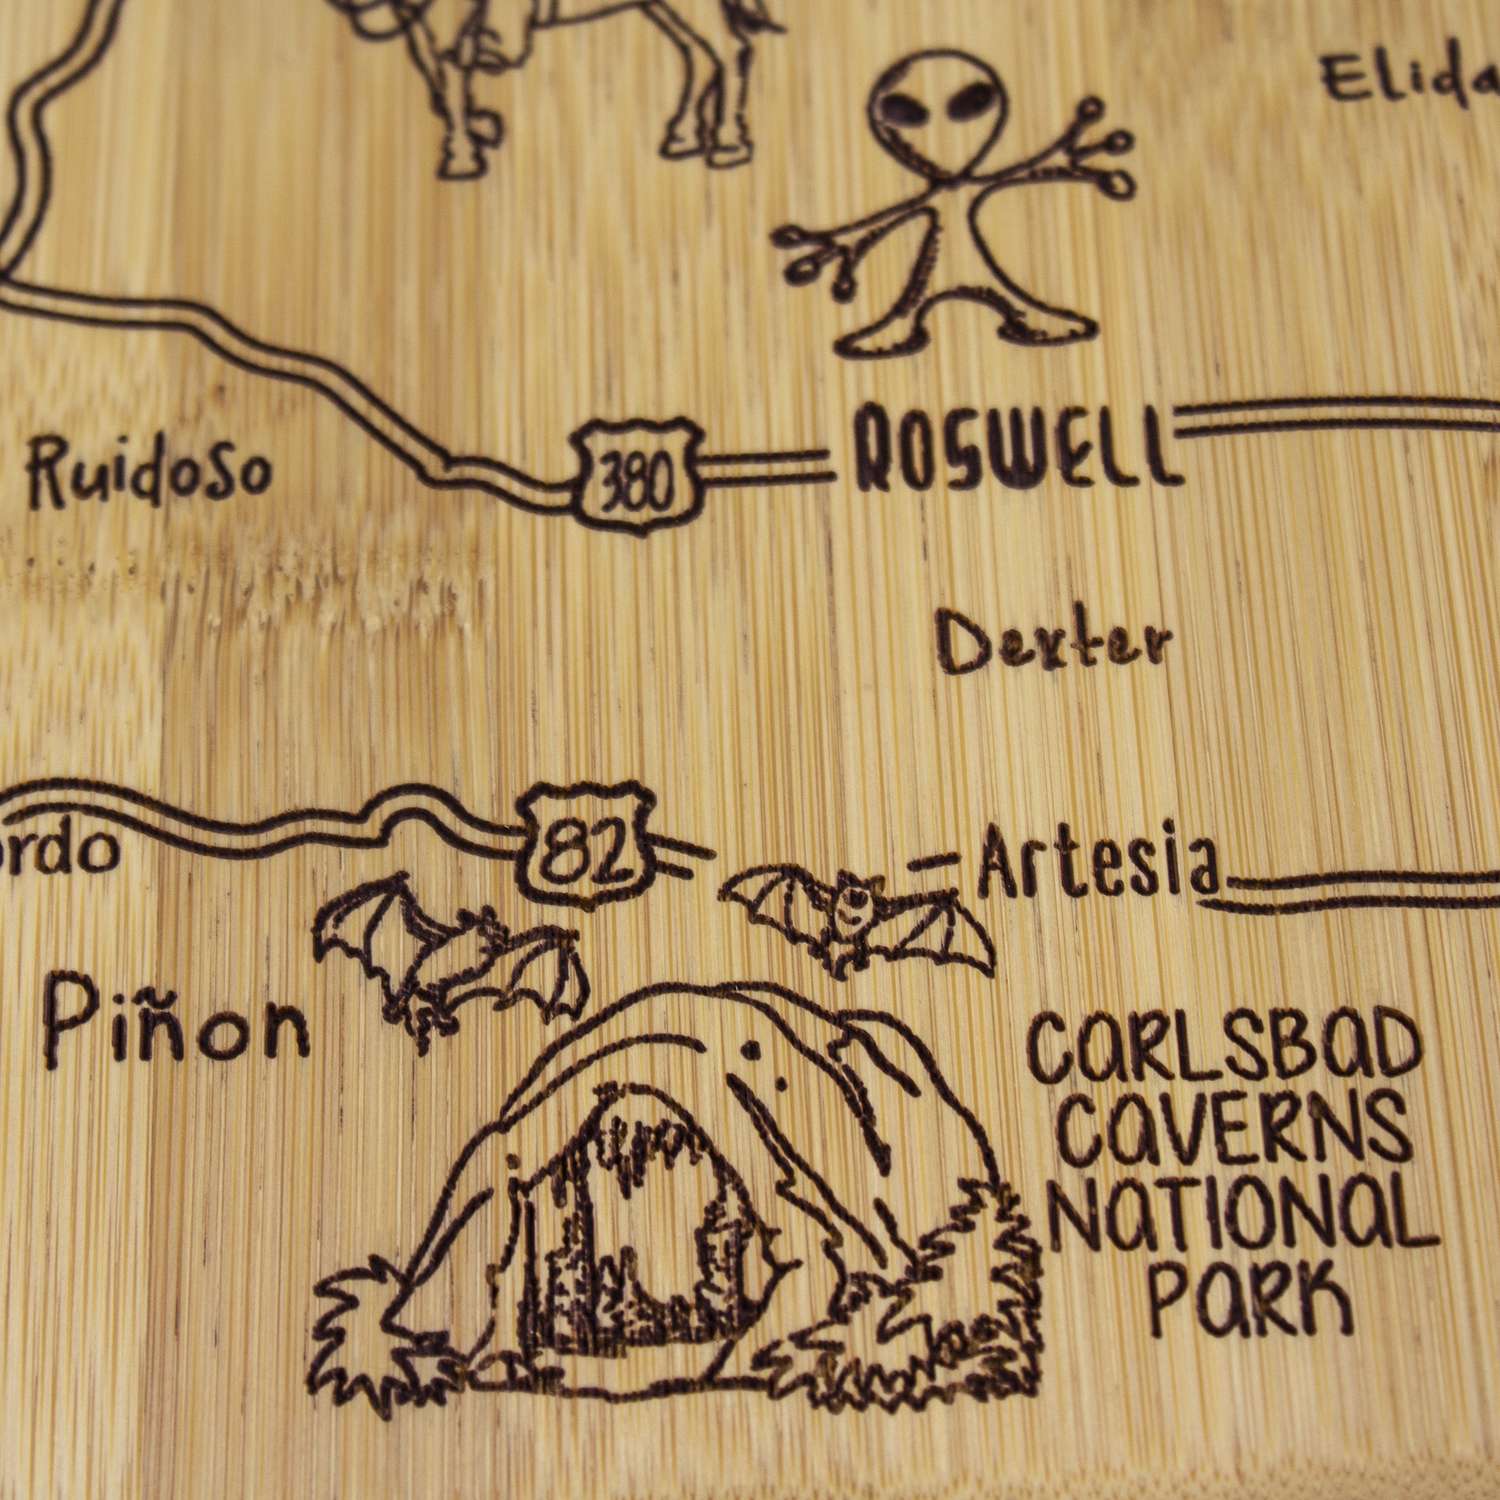 Elida
Ruidoso
380
ROSWELL
Dexter
ordo
82
Artesia
Piñon
CARLSBAD
CAVERNS
NATIONAL
PARK